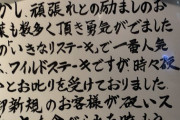 かし、頑張れとの励ましのお
葉も数多く頂き勇気がでました
のいきなりステーキ®で一番人気
ス、ワイルドステーキ®ですが時々硬
とお叱りを受けておりました。
のお客様が硬いス